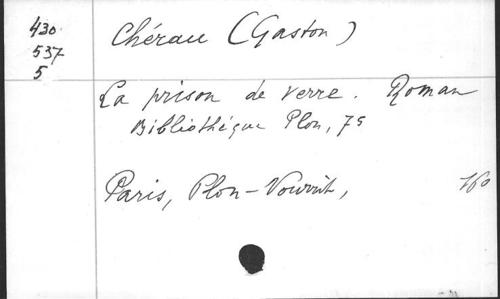 430
537
5
Chérau (Gaston)
La prison de verre. Roman
Bibliothèque Plon, 75
Paris, Plon-Nourrit,
160